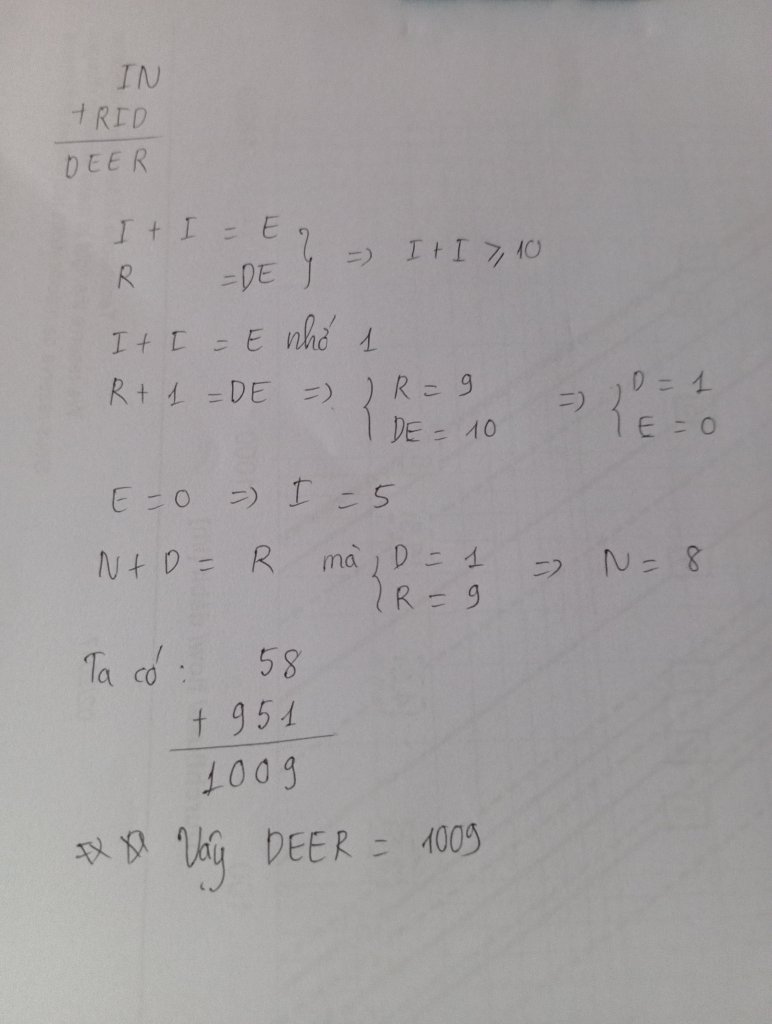 IN
+ RID
DEER
I + I = E
R = DE } => I + I ⩾ 10
I + I = E nhớ 1
R + 1 = DE => { R = 9 => { D = 1
DE = 10 E = 0
E = 0 => I = 5
N + D = R mà { D = 1 => N = 8
R = 9
Ta có : 58
+ 951
1009
Vậy DEER = 1009